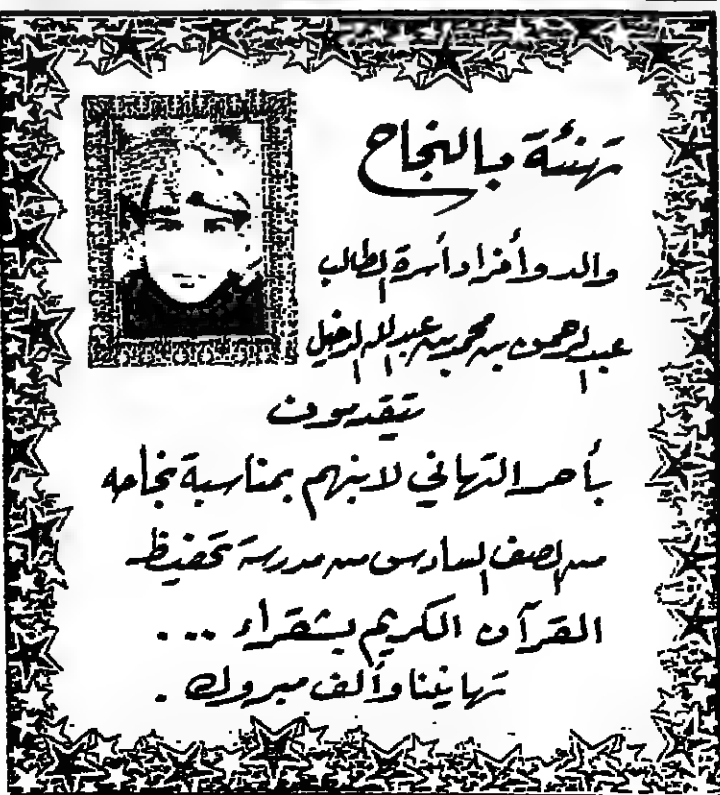 تهنئة بالنجاح
والد وأفراد أسرة الطالب
عبدالرحمن بن محمد بن عبدالله الدخيل
يتقدمون
بأحر التهاني لابنهم بمناسبة نجاحه
من الصف السادس من مدرسة تحفيظ
القرآن الكريم بشقراء ...
تهانينا وألف مبروك .